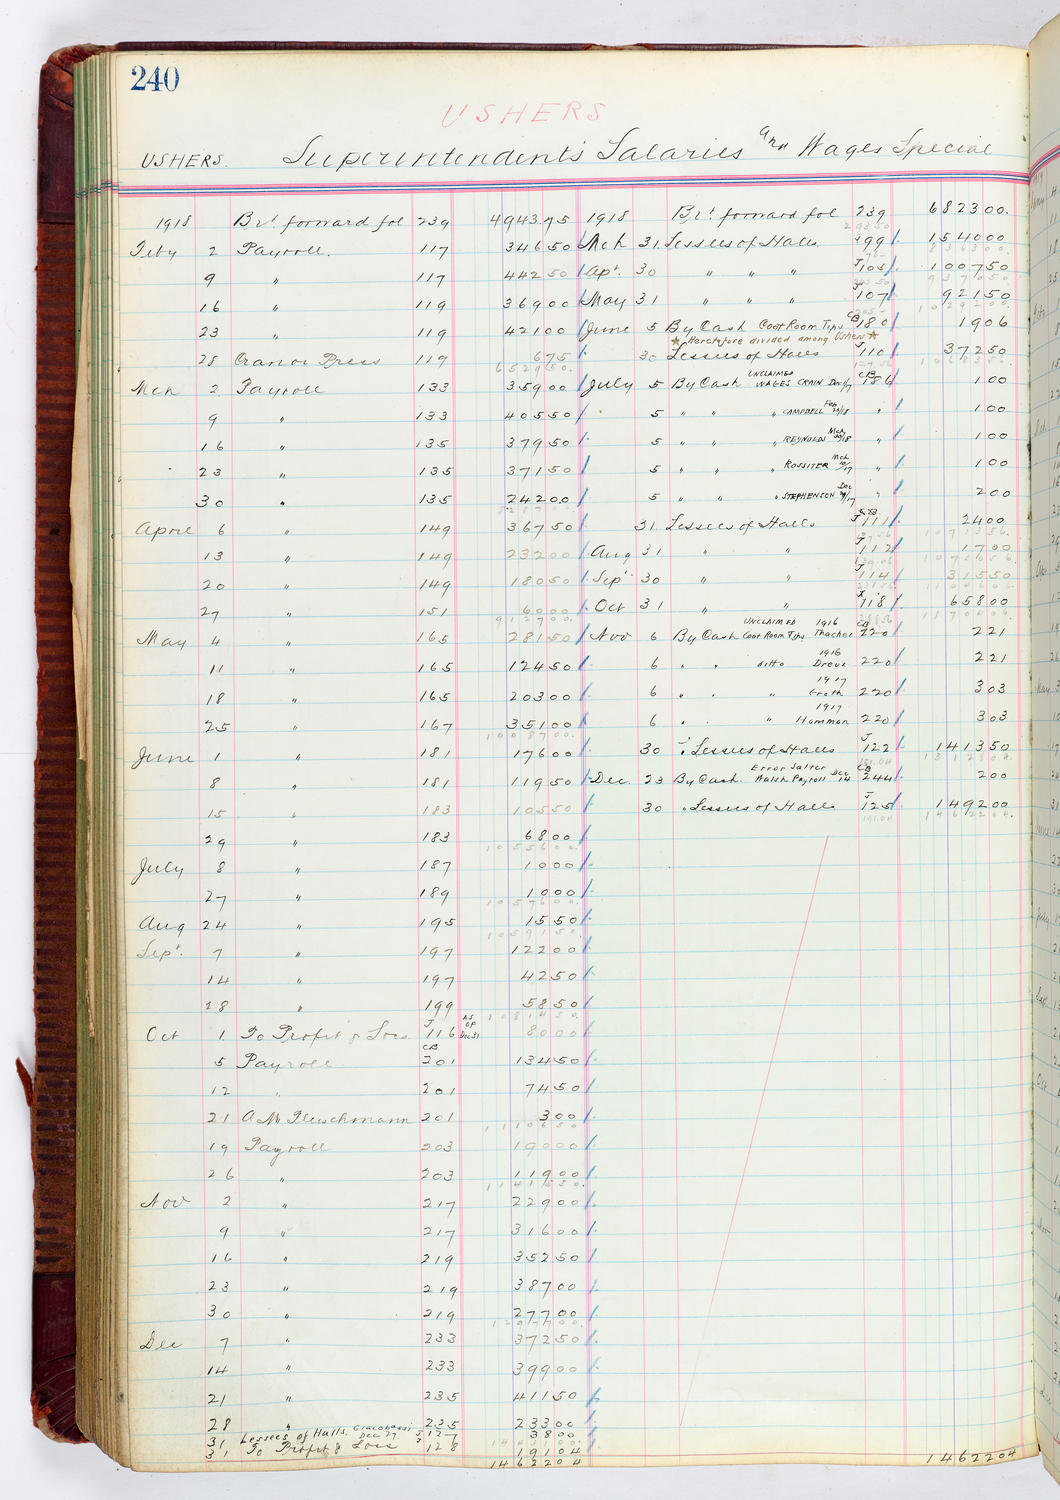 240
USHERS
USHERS. Superintendent's Salaries and Wages Special
1918 Brt forward fol 239 494375
Feby 2 Payroll. 117 34650
9 " 117 44250
16 " 119 36900
23 " 119 42100
28 Press 119 675
652950.
Mch 2 Payroll 133 35900
9 " 133 40550
16 " 135 37950
23 " 135 37150
30 " 135 24200
828700.
April 6 " 149 36750
13 " 149 23200
20 " 149 18050
27 " 151 6000
912700.
May 4 " 165 28150
11 " 165 12450
18 " 165 20300
25 " 167 35100
1008700.
June 1 " 181 17600
8 " 181 11950
15 " 183 10550
29 " 183 6800
1055600.
July 8 " 187 1000
27 " 189 1000
1057600.
Aug 24 " 195 1550
1059150.
Sept. 7 " 197 12200
14 " 197 4250
28 " 199 5850
1081450.
Oct 1 To Profit & Loss J 116 AS OF Dec 31 8000
5 Payroll CB 201 13450
12 " 201 7450
21 A M Fleischmann 201 300
1110650
19 Payroll 203 19000
26 " 203 11900
1141550.
Nov 2 " 217 22900
9 " 217 31600
16 " 219 35250
23 " 219 38700
30 " 219 27700
1297700.
Dec 7 " 233 37250
14 " 233 39900
21 " 235 41150
28 " 235 23300
31 Lessees of Halls, Dec 27 J 127 3800
31 To Profit & Loss J 128 19104
1462204
1918 Brt forward fol 239 682300.
Mch 31 Lessees of Halls. J 99 154000
836300.
Apr. 30 " " " J 105 100750
937050.
May 31 " " " J 107 92150
1029200.
June 5 By Cash Coat Room Tips CB 180 1906
* Heretofore divided among Ushers *
30 Lessees of Halls J 110 37250
July 5 By Cash UNCLAIMED WAGES CRAIN Dec 1/17 CB 186 100
5 " " " CAMPBELL Feb 23/18 " 100
5 " " " REYNOLDS Mch 30/18 " 100
5 " " " ROSSITER Mch 10/17 " 100
5 " " " STEPHENSON Dec 29/17 " 200
31 Lessees of Halls J 111 2400
1071356.
Aug 31 " " J 112 1700
Sept. 30 " " J 114 31550
Oct 31 " " J 118 65800
1170406.
Nov 6 By Cash UNCLAIMED Coat Room Tips 1916 Thacher CB 220 221
6 " " ditto 1916 Dreux 220 221
6 " " " 1917 Groth 220 303
6 " " " 1917 Hamman 220 303
30 " Lessees of Halls J 122 141350
1312804.
Dec. 23 By Cash Error Salter Walsh Payroll Dec 14 CB 244 200
30 " Lessees of Halls J 125 149200
1462204.
1462204